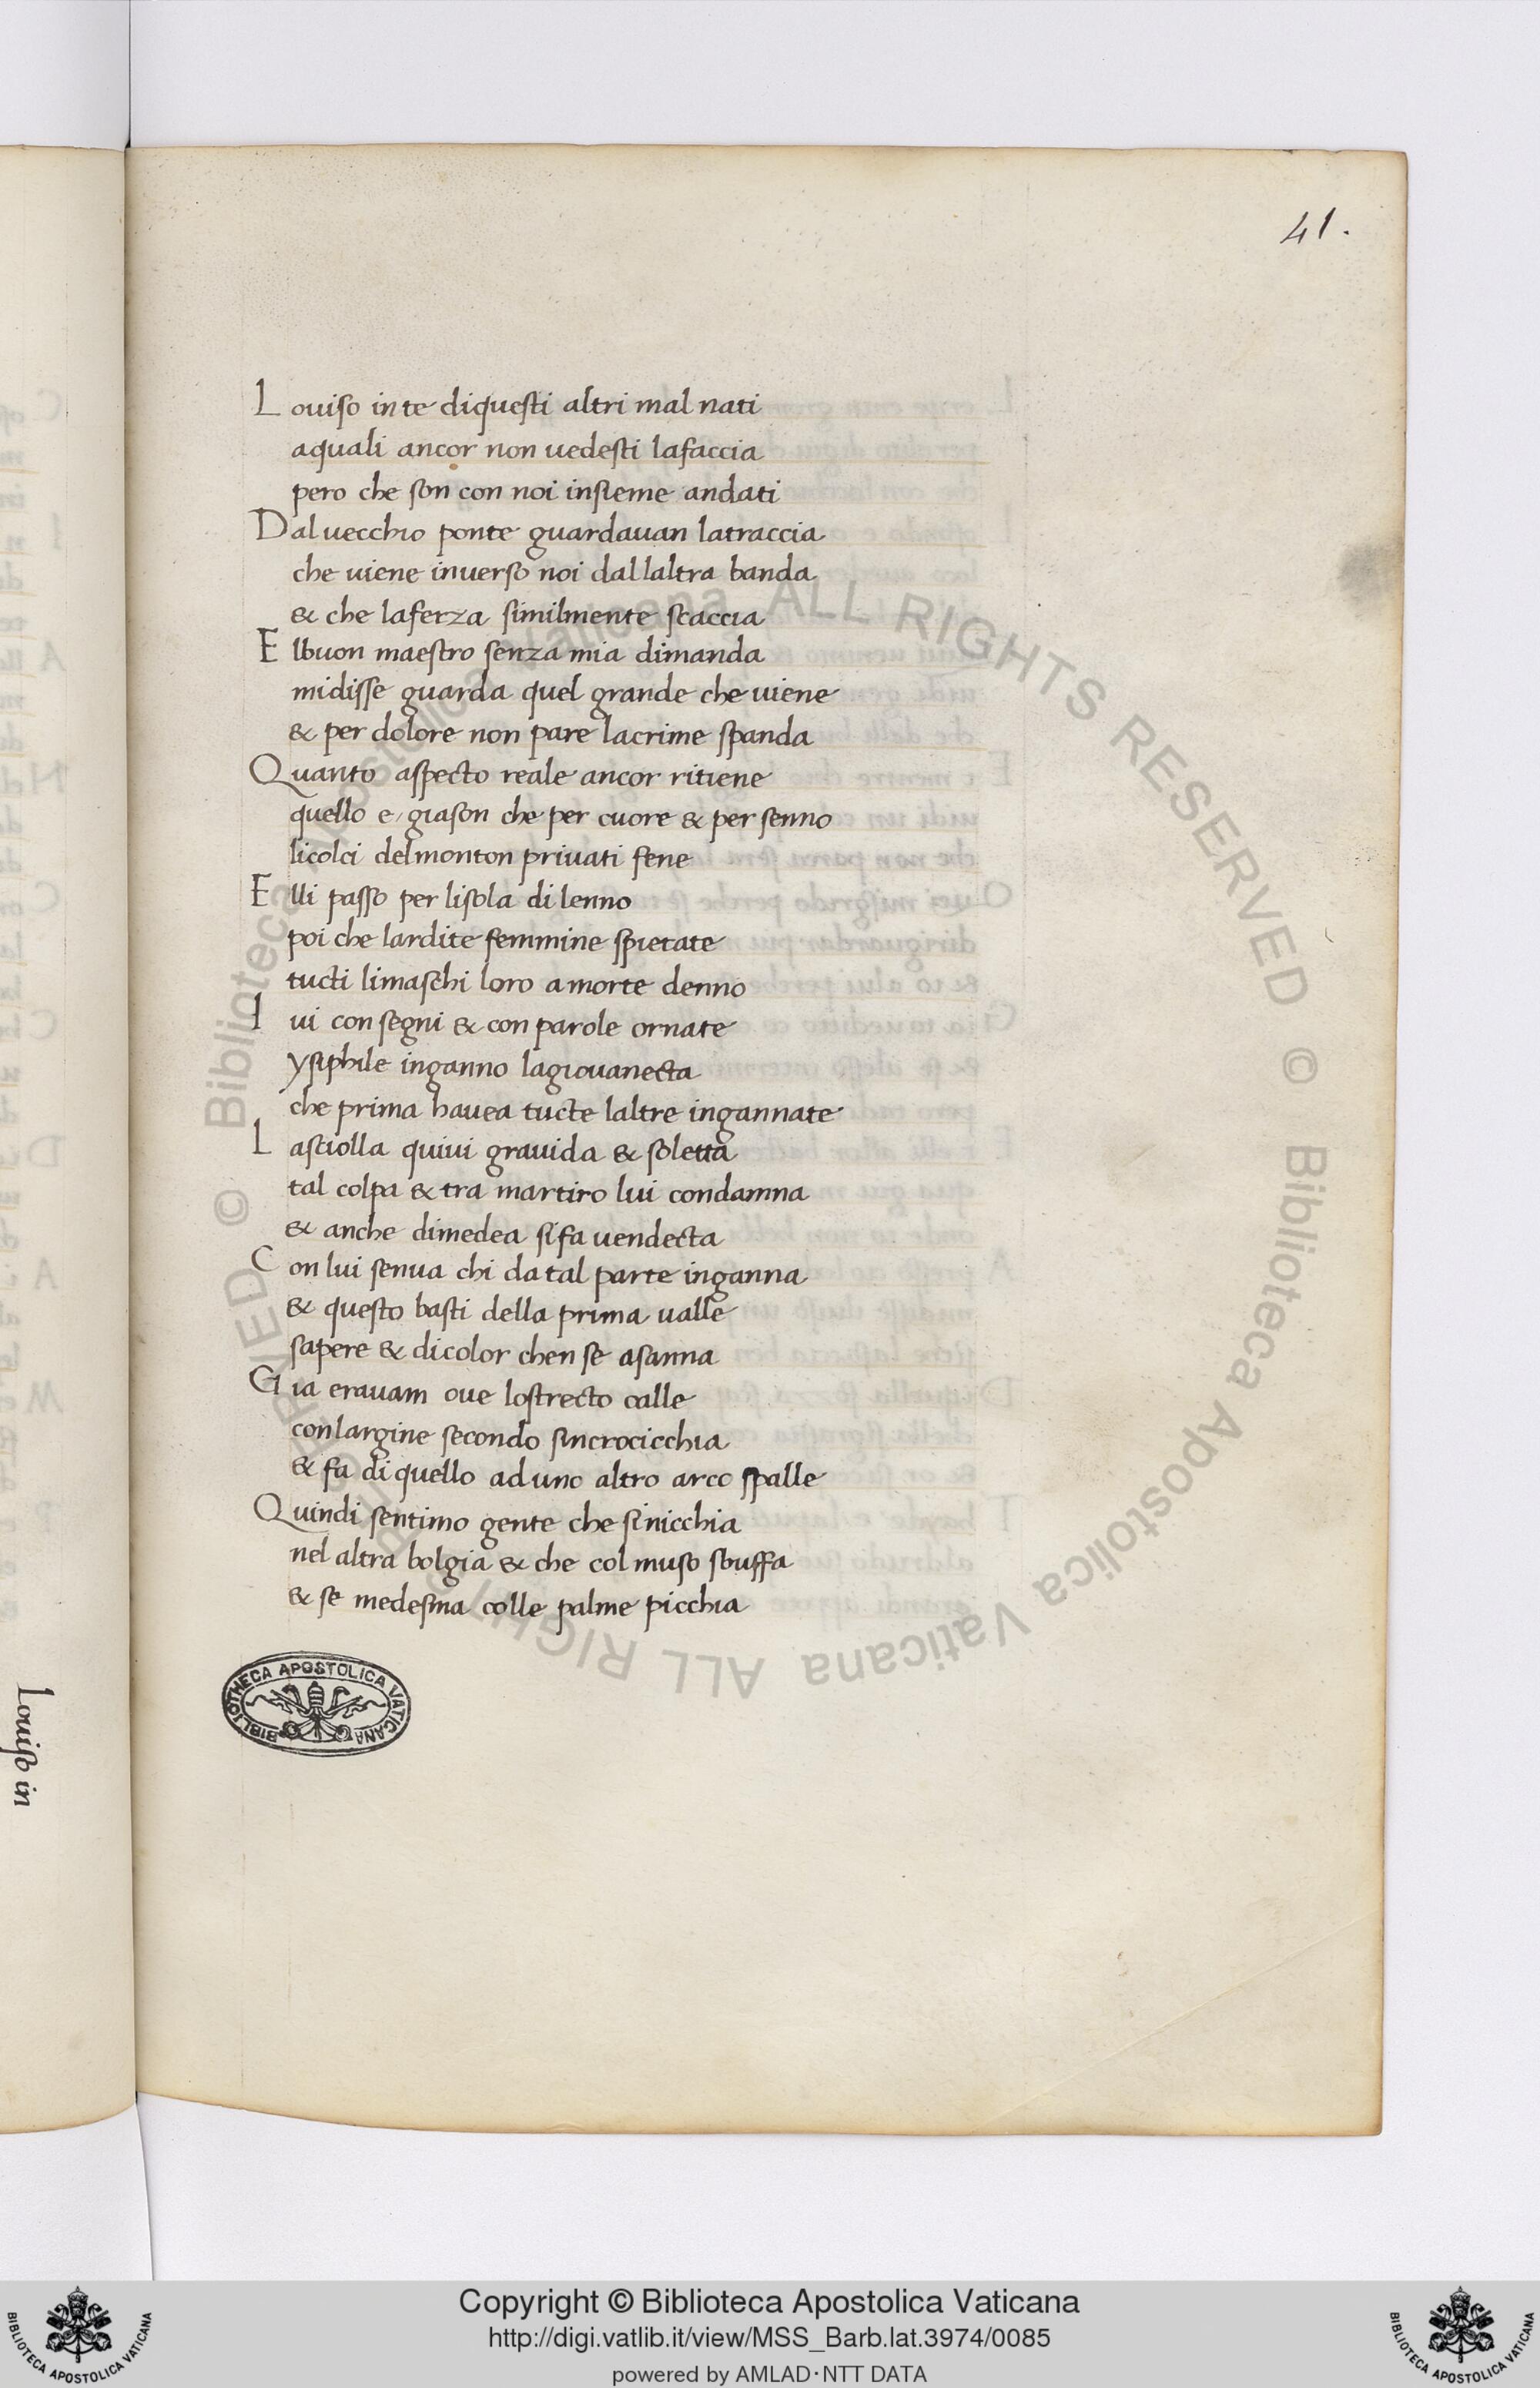 41.
L ouiso in te diquesti altri mal nati
aquali ancor non uedesti lafaccia
pero che son con noi insieme andati
Dal uecchio ponte guardauan latraccia
che uiene inuerso noi dallaltra banda
& che laferza similmente scaccia
E lbuon maestro senza mia dimanda
midisse guarda quel grande che uiene
& per dolore non pare lacrime spanda
Quanto aspecto reale ancor ritiene
quello e giason che per cuore & per senno
licolci delmonton priuati fene
E lli passo per lisola di lenno
poi che lardite femmine spietate
tucti limaschi loro a morte denno
I ui con segni & con parole ornate
ysiphile inganno lagiouanecta
che prima hauea tucte laltre ingannate
L asciolla quiui grauida & soletta
tal colpa & tra martiro lui condamna
& anche dimedea si fa uendecta
C on lui senua chi da tal parte inganna
& questo basti della prima ualle
sapere & di color chen se asanna
G ia erauam oue lostrecto calle
conlargine secondo sincrocicchia
& fa di quello ad uno altro arco spalle
Quindi sentimo gente che si nicchia
nel altra bolgia & che col muso sbuffa
& se medesma colle palme picchia
BIBLIOTHECA APOSTOLICA VATICANA
Louiso in
© Biblioteca Apostolica Vaticana ALL RIGHTS RESERVED © Biblioteca Apostolica Vaticana ALL RIGHTS RESERVED
Copyright © Biblioteca Apostolica Vaticana
http://digi.vatlib.it/view/MSS_Barb.lat.3974/0085
powered by AMLAD·NTT DATA
BIBLIOTECA APOSTOLICA VATICANA
BIBLIOTECA APOSTOLICA VATICANA